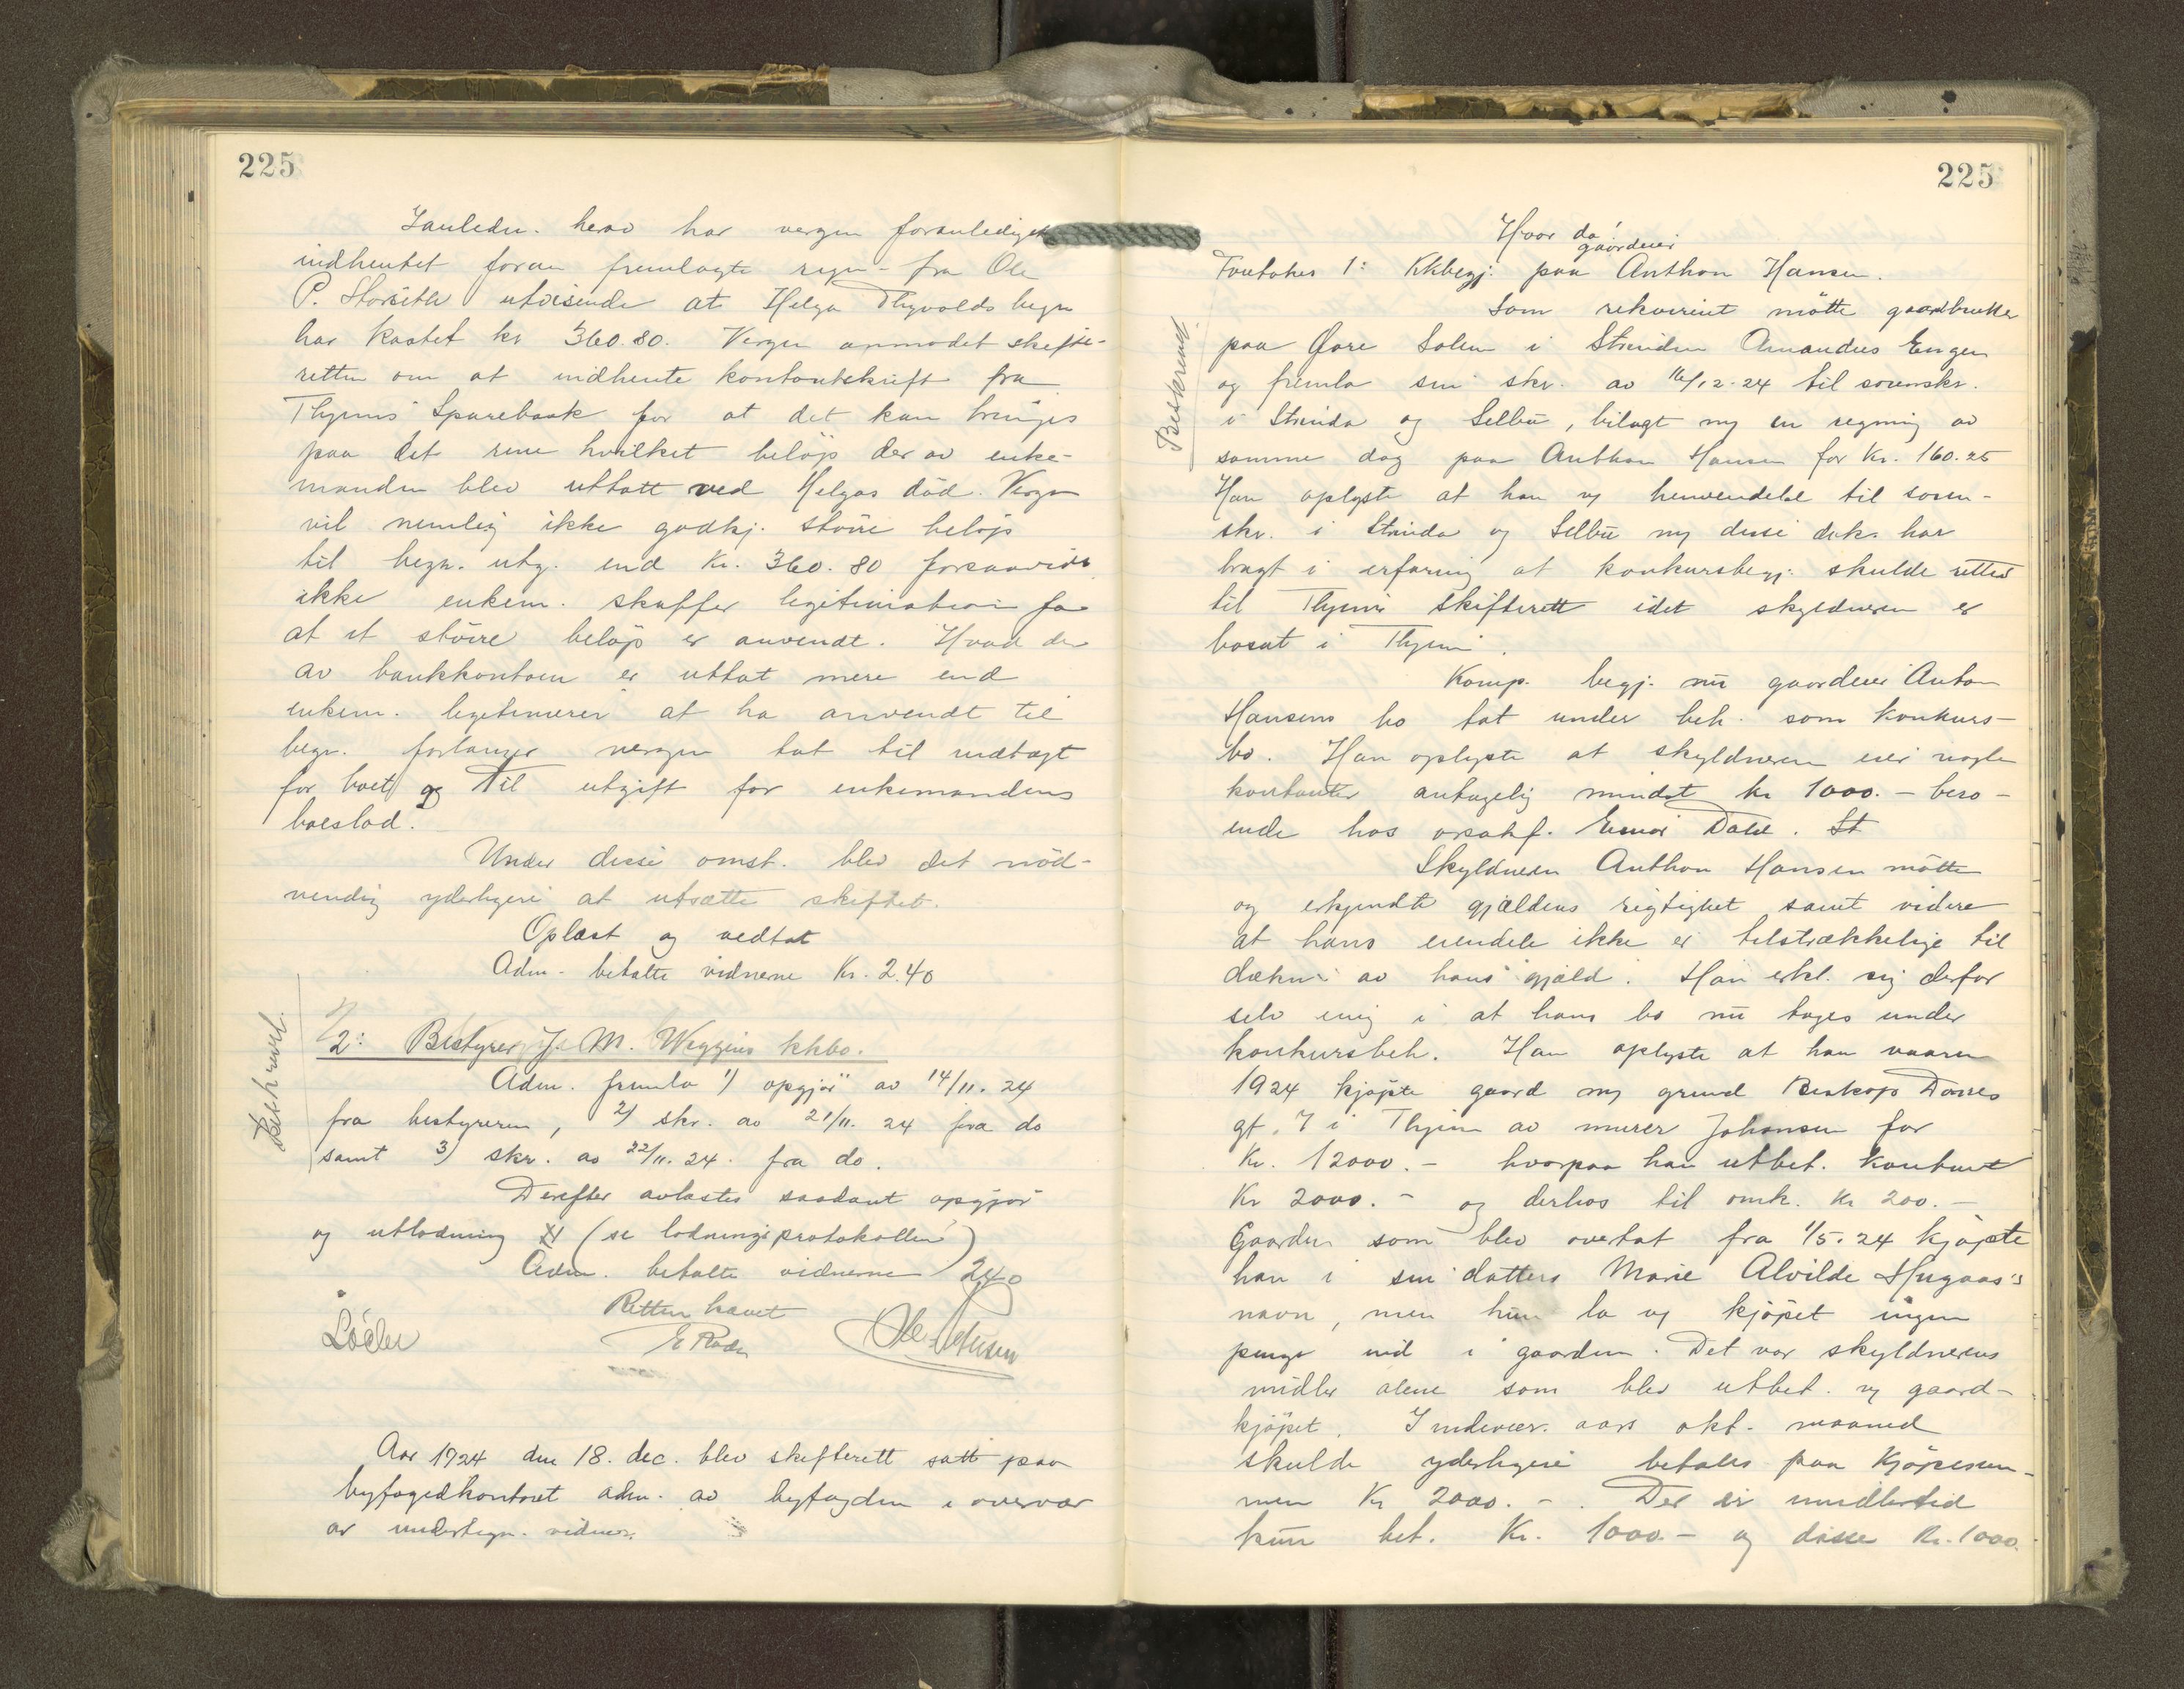 225
Ianledn. herav har vergen foranlediget
indhentet foran fremlagte regn- fra Ole
P. Storseth utvisende at Helga Thyvolds begr
har kostet kr 360.80. Vergen anmodet skifte-
retten om at indhente kontoutskrift fra
Thjems Sparebank for at det kan bringes
paa det rene hvilket beløp der av enke-
manden blev uttatt ved Helgas död. Vergen
vil nemlig ikke godkj. större beløp
til begr. utg. end Kr. 360.80 forsaavidt
ikke enkem. skaffer legitimation for
at et större beløp er anvendt. Hvad der
av bankkontoen er uttat mere end
enkem. legitimerer at ha anvendt til
begr. forlanger vergen tat til indtægt
for boet og til utgift for enkemandens
boeslod.
Under disse omst. blev det nöd-
vendig yderligere at utsætte skiftet.
Oplæst og vedtat
Adm. betalte vidnerne Kr. 2.40
Beskrevet.
2: Bestyrer M. Weggins kkbo.
Adm. fremla 1) opgjör av 14/11. 24
fra bestyreren, 2) skr. av 21/11. 24 fra do
samt 3) skr. av 22/11. 24. fra do.
Derefter avlastes saadant opgjör
og utlodning (se lodningsprotokollen)
Adm. betalte vidnerne 240
Retten hævet
Aar 1924 den 18. dec. blev skifterett satt paa
byfogedkontoret adm. av byfogden i overvær
av undertegn. vidner.
225
Hvor da!
gaardeier
Foretokes 1: Kkbegj. paa Anthon Hansen.
Beskrevet.
Som rekvirent mötte gaardbruker
paa Øvre Solem i Strinden Amandus Engen
og fremla sin skr. av 16/12-24 til sorenskr.
i Strinda og Selbu, bilagt mg en regning av
samme dag paa Anthon Hansen for Kr. 160.25
Han oplyste at han vg henvendelse til soren-
skr. i Strinda og Selbu mg disse dok. har
bragt i erfaring at konkursbegj. skulde rettes
til Thjems skifterett idet skyldneren er
bosat i Thjem.
Komp. begj. nu gaardeier Anton
Hansens bo tat under beh. som konkurs-
bo. Han oplyste at skyldneren eier nogle
kontanter antagelig mindst kr 1000.- bero-
ende hos orsakf. Einar Dahl. St
Skyldneren Anthon Hansen mötte
og erkjendte gjældens rigtighet samt videre
at hans eiendele ikke er tilstrækkelige til
dækn. av hans gjæld. Han erkl. sig derfor
selv enig i at hans bo nu tages under
konkursbeh. Han oplyste at han vaaren
1924 kjøpte gaard mg grund Biskop Darres
gt. 7 i Thjem av murer Johansen for
Kr. 12000.- hvorpaa han utbet. kontant
Kr 2000.- og derhos til omk. Kr 200.-
Gaarden som blev overtat fra 1/5.24 kjøpte
han i sin datters Marie Alvilde Hugaas's
navn, men hun la vg kjøpet ingen
penge ind i gaarden. Det var skyldnerens
midler alene som blev utbet. vg gaard-
kjöpet. I indevær. aars okt. maaned
skulde yderligere betales paa kjøpesum-
men Kr 2000.-. Der er imidlertid
kun bet. Kr. 1000.- og disse Kr. 1000.